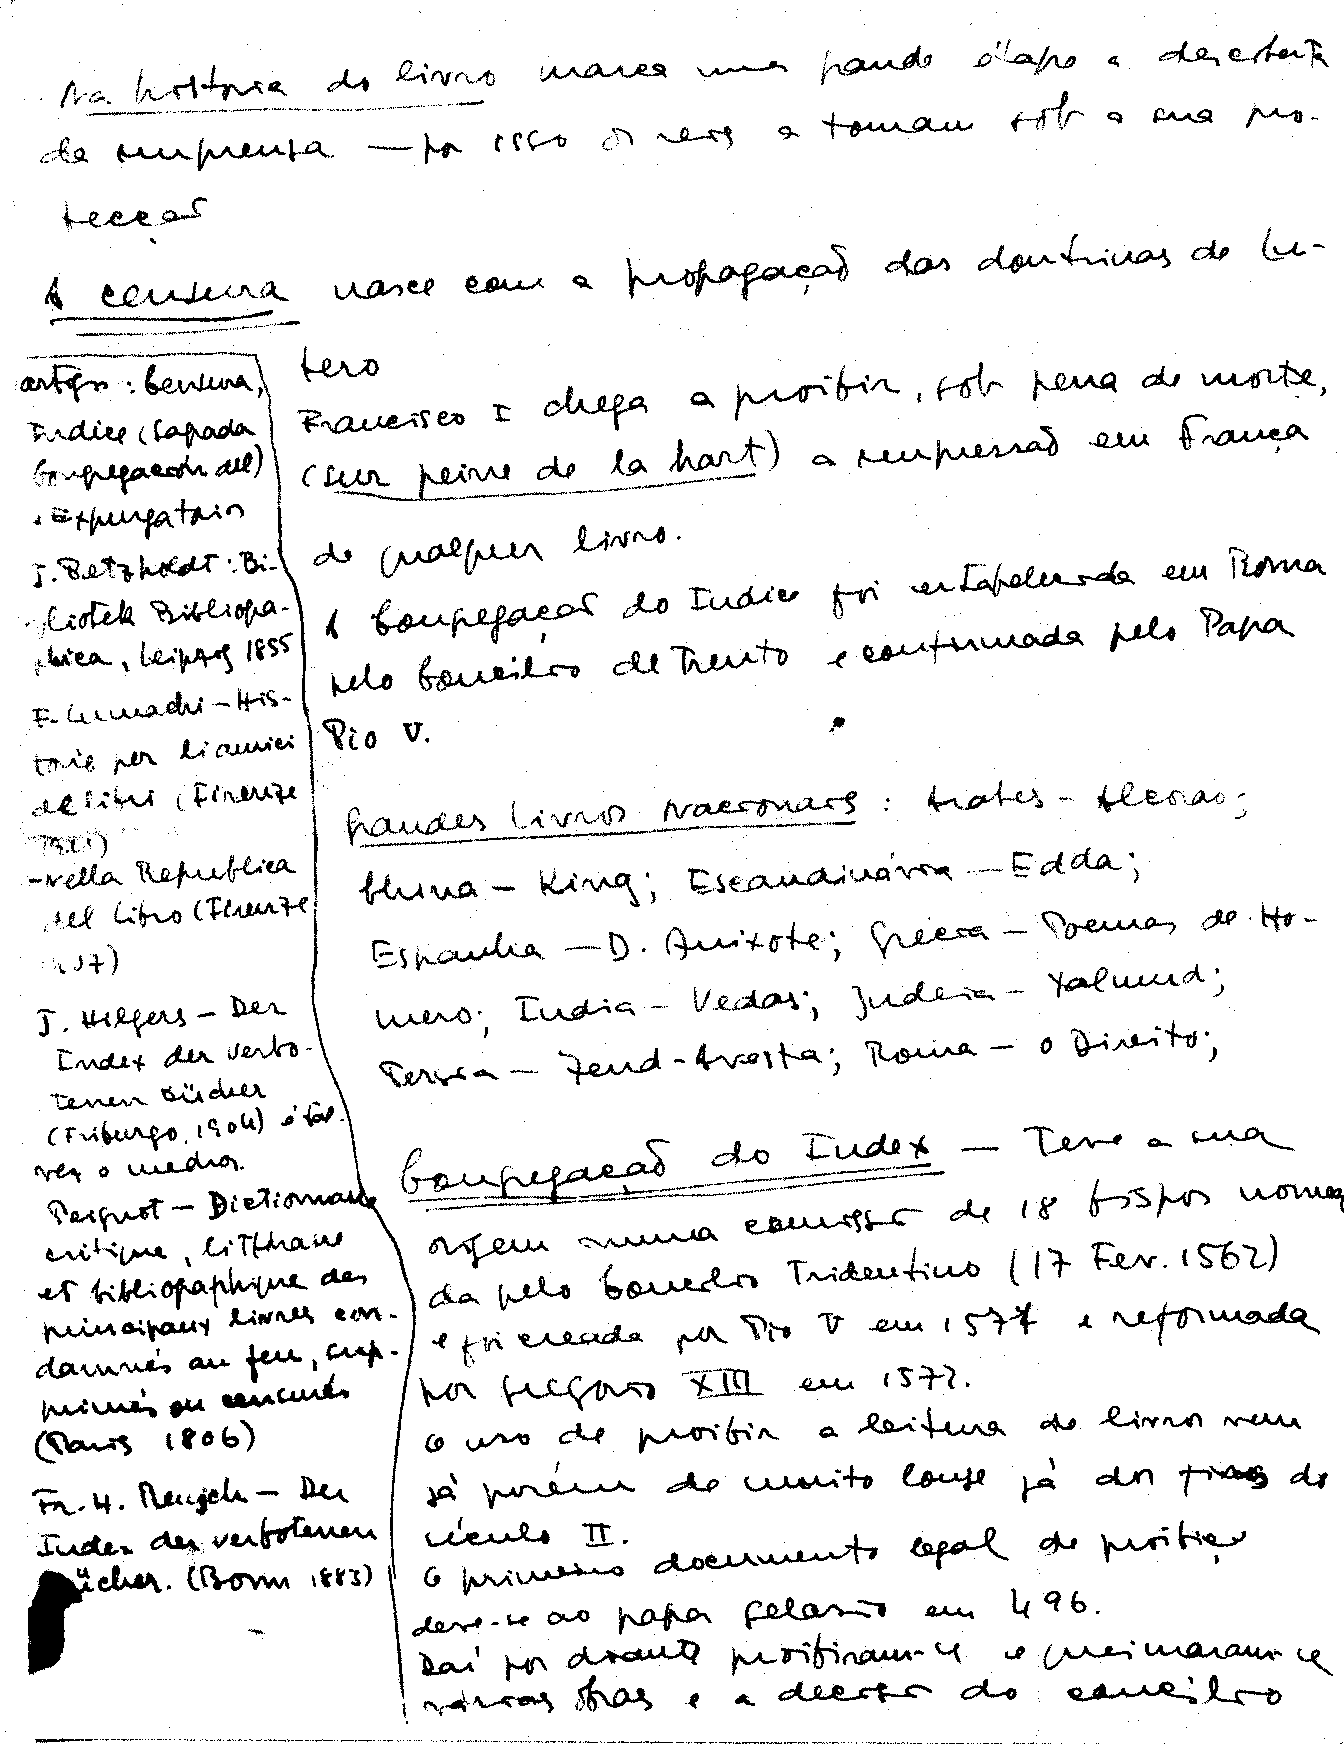 Na história do livro marca uma grande étape a descoberta
da imprensa — por isso os reis a tomam sob a sua pro-
tecção
A censura nasce com a propagação das doutrinas de Lu-
tero
Francisco I chega a proibir, sob pena de morte,
(sur peine de la hart) a impressão em França
de qualquer livro.
A Congregação do Indice foi estabelecida em Roma
pelo Concílio de Trento e confirmada pelo Papa
Pio V.
Grandes Livros Nacionais: Arabes - Alcorão;
China - King; Escandinávia - Edda;
Espanha - D. Quixote; Grécia - Poemas de Ho-
mero; India - Vedas; Judeia - Talmud;
Persia - Zend-Avesta; Roma - o Direito;
Congregação do Index - Teve a sua
origem numa comissão de 18 bispos nomea
da pelo Concilio Tridentino (17 Fev. 1562)
e foi creada por Pio V em 1577 e reformada
por Gregorio XIII em 1572.
O uso de proibir a leitura de livros vem
já porém de muito longe já dos fins do
século II.
O primeiro documento legal de proibição
deve-se ao papa Gelasio em 496.
Daí por diante proibiram-se e queimaram-se
várias obras e a decisão do concilio
artigos: Censura,
Indice (Sagrada
Congregación del)
e Expurgatorio
J. Petzholdt: Bi-
bliotek Bibliogra-
phica, Leipzig 1855
F. Lumachi - His-
torie per li amici
del libri (Firenze
- nella Republica
del libro (Firenze
J. Hilgers - Der
Index der verbo-
tenen Bücher
(Friburgo, 1904) é tal-
vez o melhor.
Peignot - Dictionnaire
critique, littéraire
et bibliographique des
principaux livres con-
damnés au feu, sup-
primés ou censurés
(Paris 1806)
Fr. H. Reusch - Der
Index der verbotenen
Bücher. (Bonn 1883)